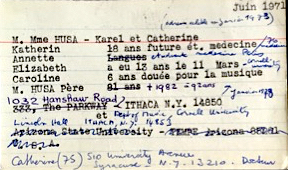 Juin 1971
M. Mme HUSA - Karel et Catherine
Katherin 18 ans future ét. medecine
Annette Langues
Elizabeth a eu 13 ans le 11 Mars - Cornell University
Caroline 6 ans douée pour la musique
M. HUSA Père 81 ans + 1982 - 92 ans
1032 Hanshaw Road
333, The PARKWAY - ITHACA N.Y. 14850
et Dept of Music, Cornell University
Lincoln Hall ITHACA, N.Y. 14853
Arizona State University - TEMPE Arizona
Catherine (75) 810 University Avenue
Syracuse N.Y. 13210. Docteur